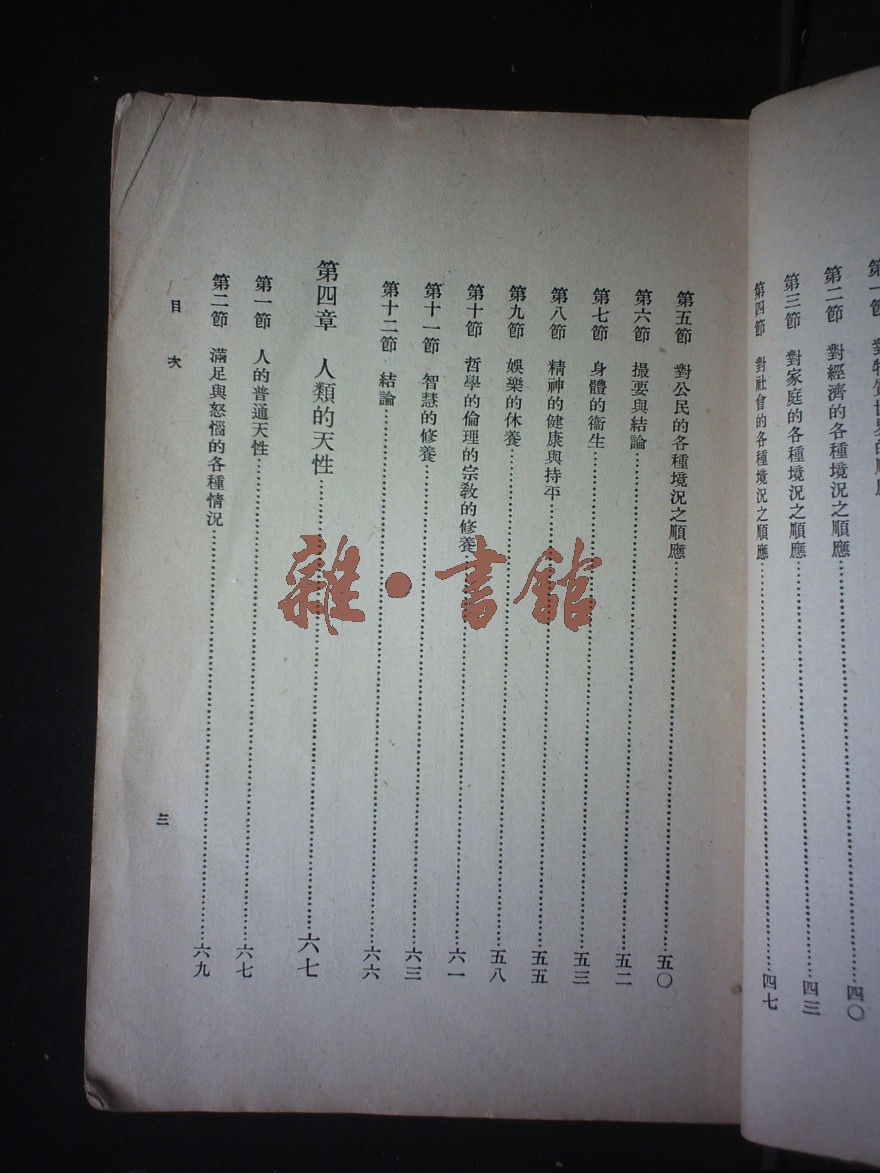 第二節　對經濟的各種境況之順應……四〇
第三節　對家庭的各種境況之順應……四三
第四節　對社會的各種境況之順應……四七
第五節　對公民的各種境況之順應……五〇
第六節　撮要與結論……五二
第七節　身體的衞生……五三
第八節　精神的健康與持平……五五
第九節　娛樂的休養……五八
第十節　哲學的倫理的宗教的修養……六一
第十一節　智慧的修養……六三
第十二節　結論……六六
第四章　人類的天性……六七
第一節　人的普通天性……六七
第二節　滿足與怒惱的各種情況……六九
目次
三
雜·書館